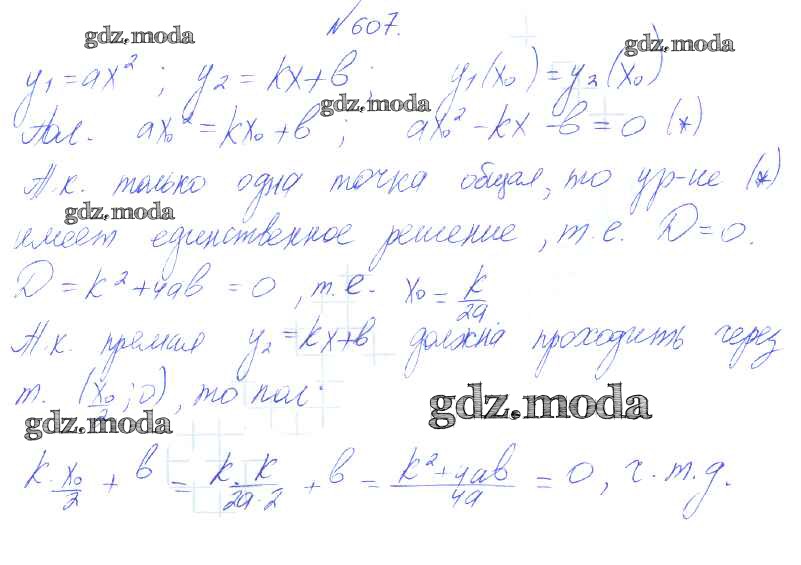 №607.
gdz.moda
gdz.moda
y₁ = ax² ; y₂ = kx + b ; y₁(x₀) = y₂(x₀)
gdz.moda
Пол. ax₀² = kx₀ + b ; ax₀² - kx - b = 0 (*)
Т.к. только одна точка общая, то ур-ие (*)
gdz.moda
имеет единственное решение, т.е. D = 0.
D = k² + 4ab = 0, т.е. x₀ = k/2a
Т.к. прямая y₂ = kx + b должна проходить через
т. (x₀/2 ; 0), то пол:
gdz.moda
gdz.moda
k · x₀/2 + b = k · k/2a·2 + b = k² + 4ab/4a = 0, ч.т.д.